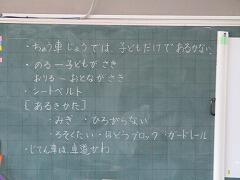 ・ちゅう車じょうでは、子どもだけであるかない
・のる―子どもがさき
おりる―おとながさき
・シートベルト
[あるきかた]
・みぎ ・ひろがらない
・ろそくたい・ほどうブロック・ガードレール
・じてん車は、車道がわ